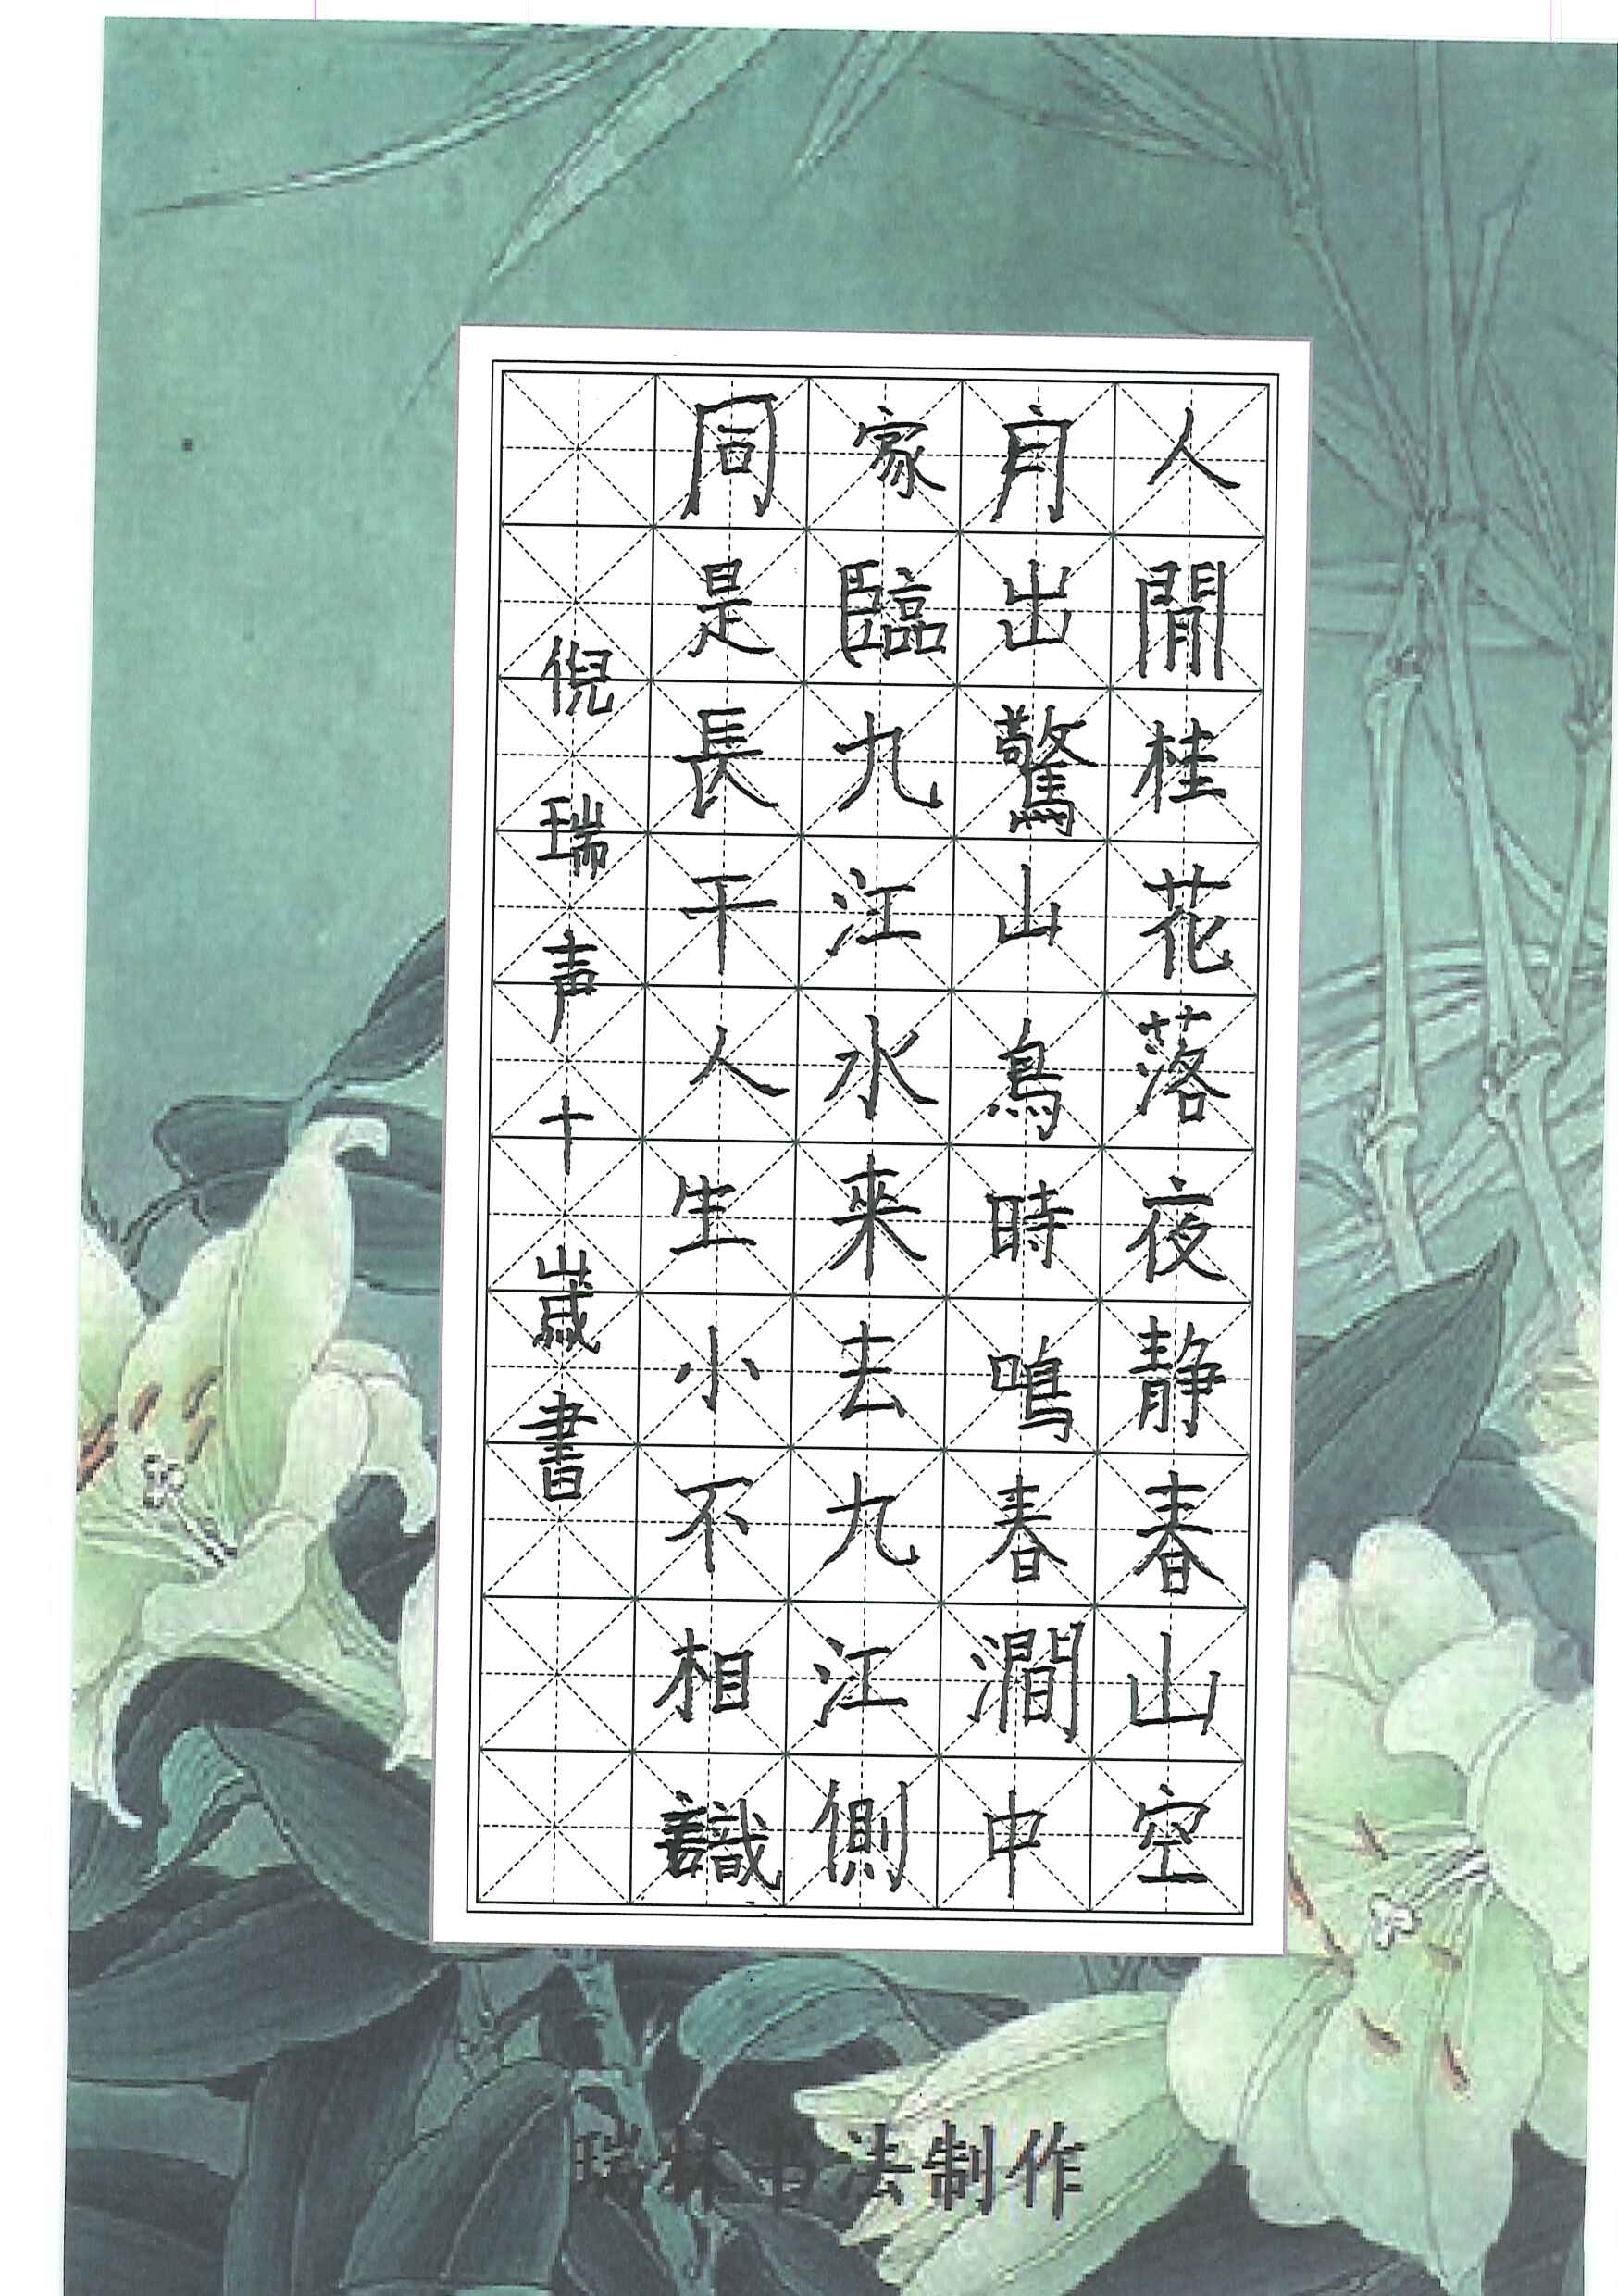 人閒桂花落夜静春山空
月出驚山鳥時鳴春澗中
家臨九江水来去九江側
同是長干人生小不相識
倪瑞声十歲書
瑞林书法制作